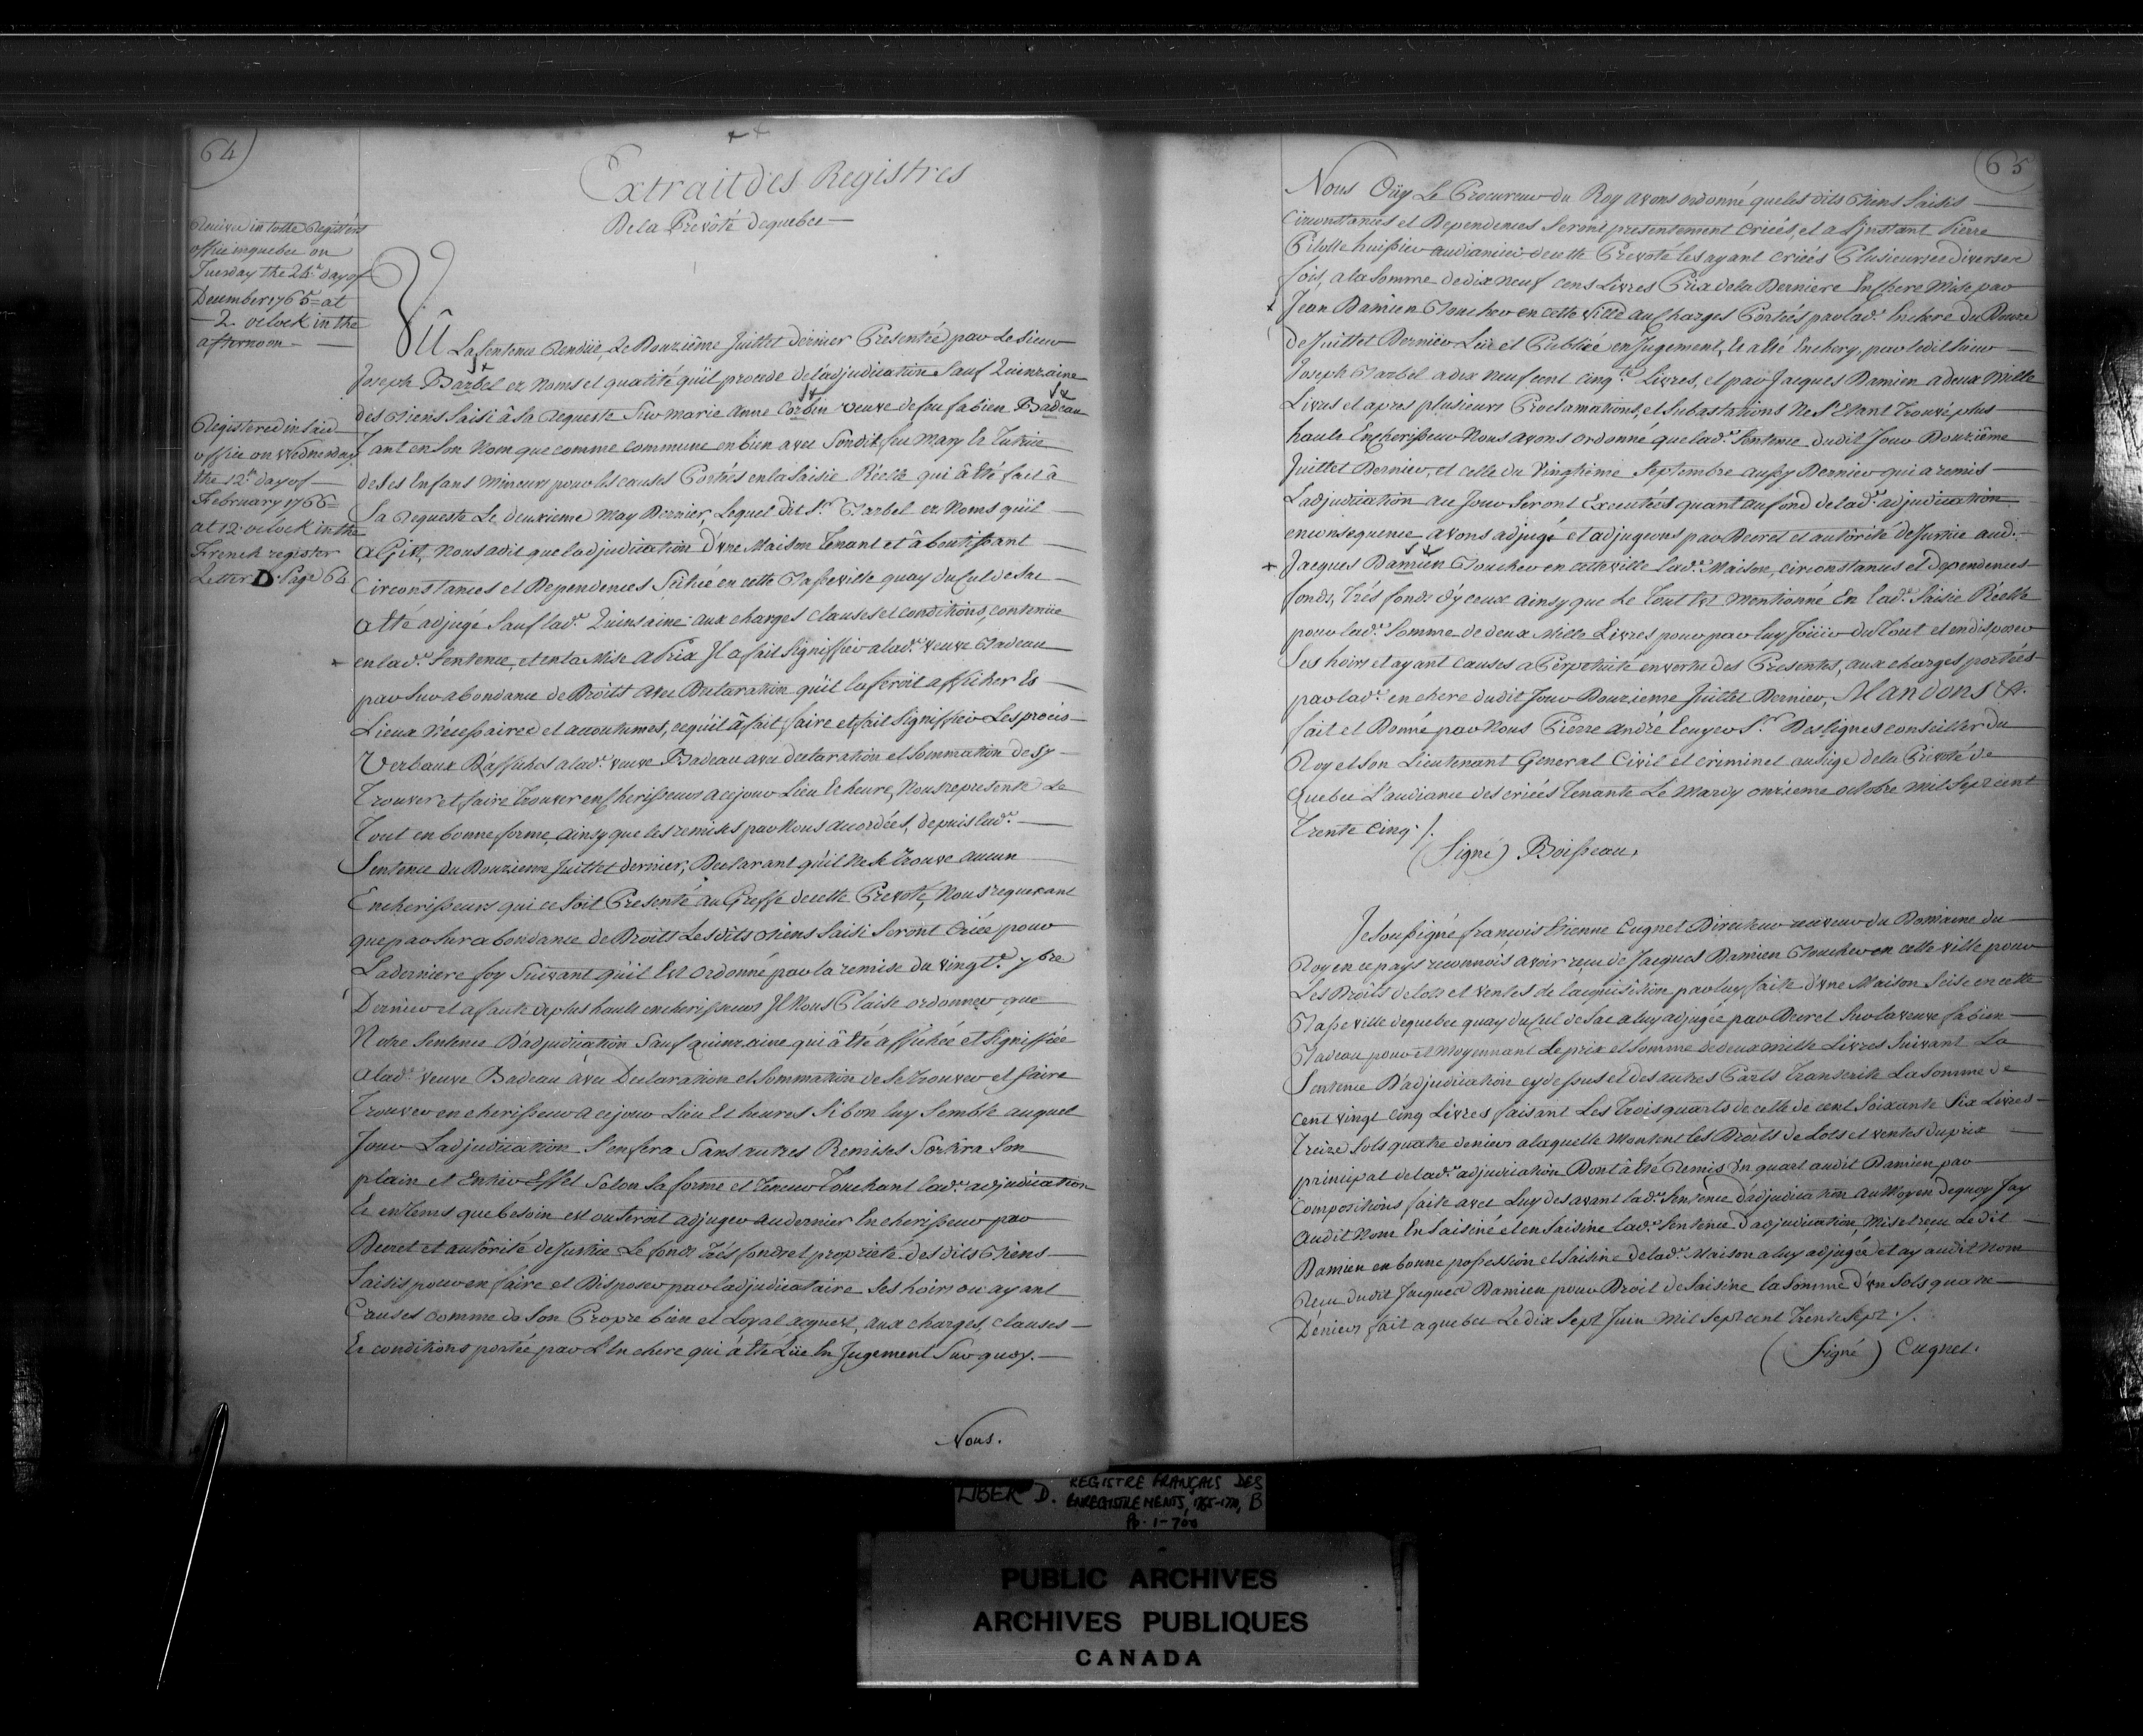 64
Receiv'd in to the Registers
office in quebec on
Tuesday the 24th day of
December 1765 = at
2 oclock in the
afternoon
Registered in said
office on Wednesday
the 12th day of
February 1766 =
at 12 oclock in the
French register
Letter D. Page 64
Extrait des Registres
De la Prevôté de quebec
Vû La Sentence Rendüe Le Douziême Juillet dernier Presentée par Le Sieur
Joseph Barbel ez Noms et qualité qüil procede de l'adjudication Sauf Quinzaine
des Biens Saisi â la Requeste Sur marie Anne Corbin veuve de feu fabien Badeau
Tant en Son Nom que comme commune en bien avec Son dit feu Mary Et Tutrice
de Ses Enfans Mineurs pour les causes Portés en la Saisie Réelle qui â Eté fait â
Sa Requeste Le deuxieme May Dernier, Lequel dit Sr. Barbel ez Noms qüil
agist, Nous a dit que ladjudication D'vne Maison Tenant et âboutissant
Circonstances et Dependences Scitüée en cette Basseville quay du Cul de Sac
a Eté adjugé Sauf lade. Quinsaine aux charges clauses et conditions, contenüe
en lade. Sentence, et en la Mise a Prix Il a fait Signiffier a lade. veuve Badeau
par Sur abondance de Droits avec Declaration qüil la feroit afficher Es
Lieux Nécessaires et accoutumés, ce qüil â fait faire et fait Signiffier Les procés
Verbaux D'affiches a lade. veuve Badeau avec declaration et Sommation de Sy
Trouver et faire Trouver encherisseurs a ce jour Lieu Et heure, Nous represente Le
Tout en bonne forme ainsy que les remises par Nous accordées, depuis lade.
Sentence du Douzieme Juillet dernier, Declarant qüil Ne Se Trouve aucun
Encherisseurs qui ce Soit Presenté au Greffe de cette Prevoté, Nous requerant
que par Sur abondance de Droits Les dits Biens Saisi Seront Criée pour
La derniere foy Suivant qüil Est Ordonné par la remise du vingte. 7bre
Dernier et a faute de plus hault encherisseurs Il Nous Plaise ordonner que
Notre Sentence D'adjudication Sauf quinzaine qui â Eté affichée et Signiffiée
a lade. veuve Badeau avec Declaration et Sommation de Se Trouver et faire
Trouver encherisseur a ce jour Lieu Et heures Si bon luy Semble auquel
Jour Ladjudication S'en fera Sans autres Remises Sortira Son
plain et Entier Effet Selon Sa forme et Teneur Touchant lade. adjudication
Et en Tems que besoin est ou Seroit adjuger au dernier Encherisseur par
Decret et autôrité de Justice Le fonds Trés fonds et proprieté des dits Biens
Saisis pour en faire et Disposer par ladjudicataire Ses hoirs ou ayant
Causes comme de Son Propre bien et Loyal acquest, aux charges, clauses
Et conditions portée par L'Enchere qui â Eté Lüe En Jugement Sur quoy.
Nous.
65
Nous Oüy Le Procureur du Roy avons ordonné que les dits Biens Saisis
Circonstances et Dependences Seront presentement Criées, et a Linstant Pierre
Pilotte huissier audiancier de cette Prevoté les ayant criées Plusieurs et Diverse
fois, a la Somme de dix neuf cens Livres Prix de la Derniere Enchere Mise par
Jean Damien Boucher en cette Ville aux charges Portées par lade. Enchere du Douze
de Juillet Dernier Lüe et Publiée en Jugement, Et a Eté Enchery, par ledit Sieur
Joseph Barbel a dix neuf cent cinqte. Livres, et par Jacques Damien a deux Mille
Livres et apres plusieurs Proclamations, et Subastations Ne S'Etant Trouvé plus
hault Encherisseur Nous avons ordonné que lade. Sentence dudit Jour Douziême
Juillet Dernier, et celle du Vingtieme Septembre aussy Dernier qui a remis
Ladjudication au Jour Seront Executées quant au fond de lad.e adjudication
en consequence avons adjugé et adjugeons par Decret et autôrité de Justice aud.
Jacques Damien Boucher en cette ville lade. Maison, circonstances et Dependences
fonds, Trés fonds d'yceux ainsy que Le Tout Est Mentionné En lade. Saisie Réelle
pour lade. Somme de deux Mille Livres pour par luy Joüir du Tout et en disposer
Ses hoirs et ayant causes a Perpetuité en vertu des Presentes, aux charges portées
par lade. enchere dudit Jour Douzieme Juillet Dernier, Mandons &c.
fait et Donné par Nous Pierre André Ecuyer Sr. Deslignes conseiller du
Roy et Son Lieutenant General Civil et criminel au Siege de la Prevoté de
Quebec L'audiance des criées Tenante Le Mardy onzieme octobre mil Sept cent
Trente cinq ./.
(Signé) Boisseau,
Je Soussigné francois Etienne Cugnet Directeur receveur du Domaine du
Roy en ce pays reconnois avoir reçu de Jacques Damien Boucher en cette ville pour
Les Droits de lots et ventes de lacquisition par luy faite d'vne Maison Seise en cette
Basse ville de quebec quay du Cul de Sac a luy adjugée par Decret Sur la veuve fabien
Badeau pour et Moyennant Le prix et Somme de deux mille Livres Suivant La
Sentence D'adjudication cy dessus et des autres Parts Transcrite La Somme de
cent vingt cinq Livres faisant Les Trois quarts de celle de cent Soixante Six Livres
Treize Sols quatre deniers a laquelle Montent les Droits de Lots et ventes du prix
principal de lade. adjudication Dont â Eté Remis Un quart audit Damien par
Compositions faite avec Luy des avant lade. Sentence d'adjudication, Au Moyen de quoy Jay
Audit Nom Ensaisiné et ensaisine lade. Sentence D'adjudication, Mis et reçu Le dit
Damien en bonne possession et Saisine de lade. Maison a luy adjugée et ay audit Nom
Reçu dudit Jacques Damien pour Droit de Saisine la Somme d'vn Sols quatre
Deniers fait a quebec Le dix Sept Juin Mil Sept cent Trente Sept ./.
(Signé) Cugnet.
LIBER D. REGISTRE FRANÇAIS DES
ENREGISTREMENTS, 1765-1770, B
Pp. 1-700
PUBLIC ARCHIVES
ARCHIVES PUBLIQUES
CANADA